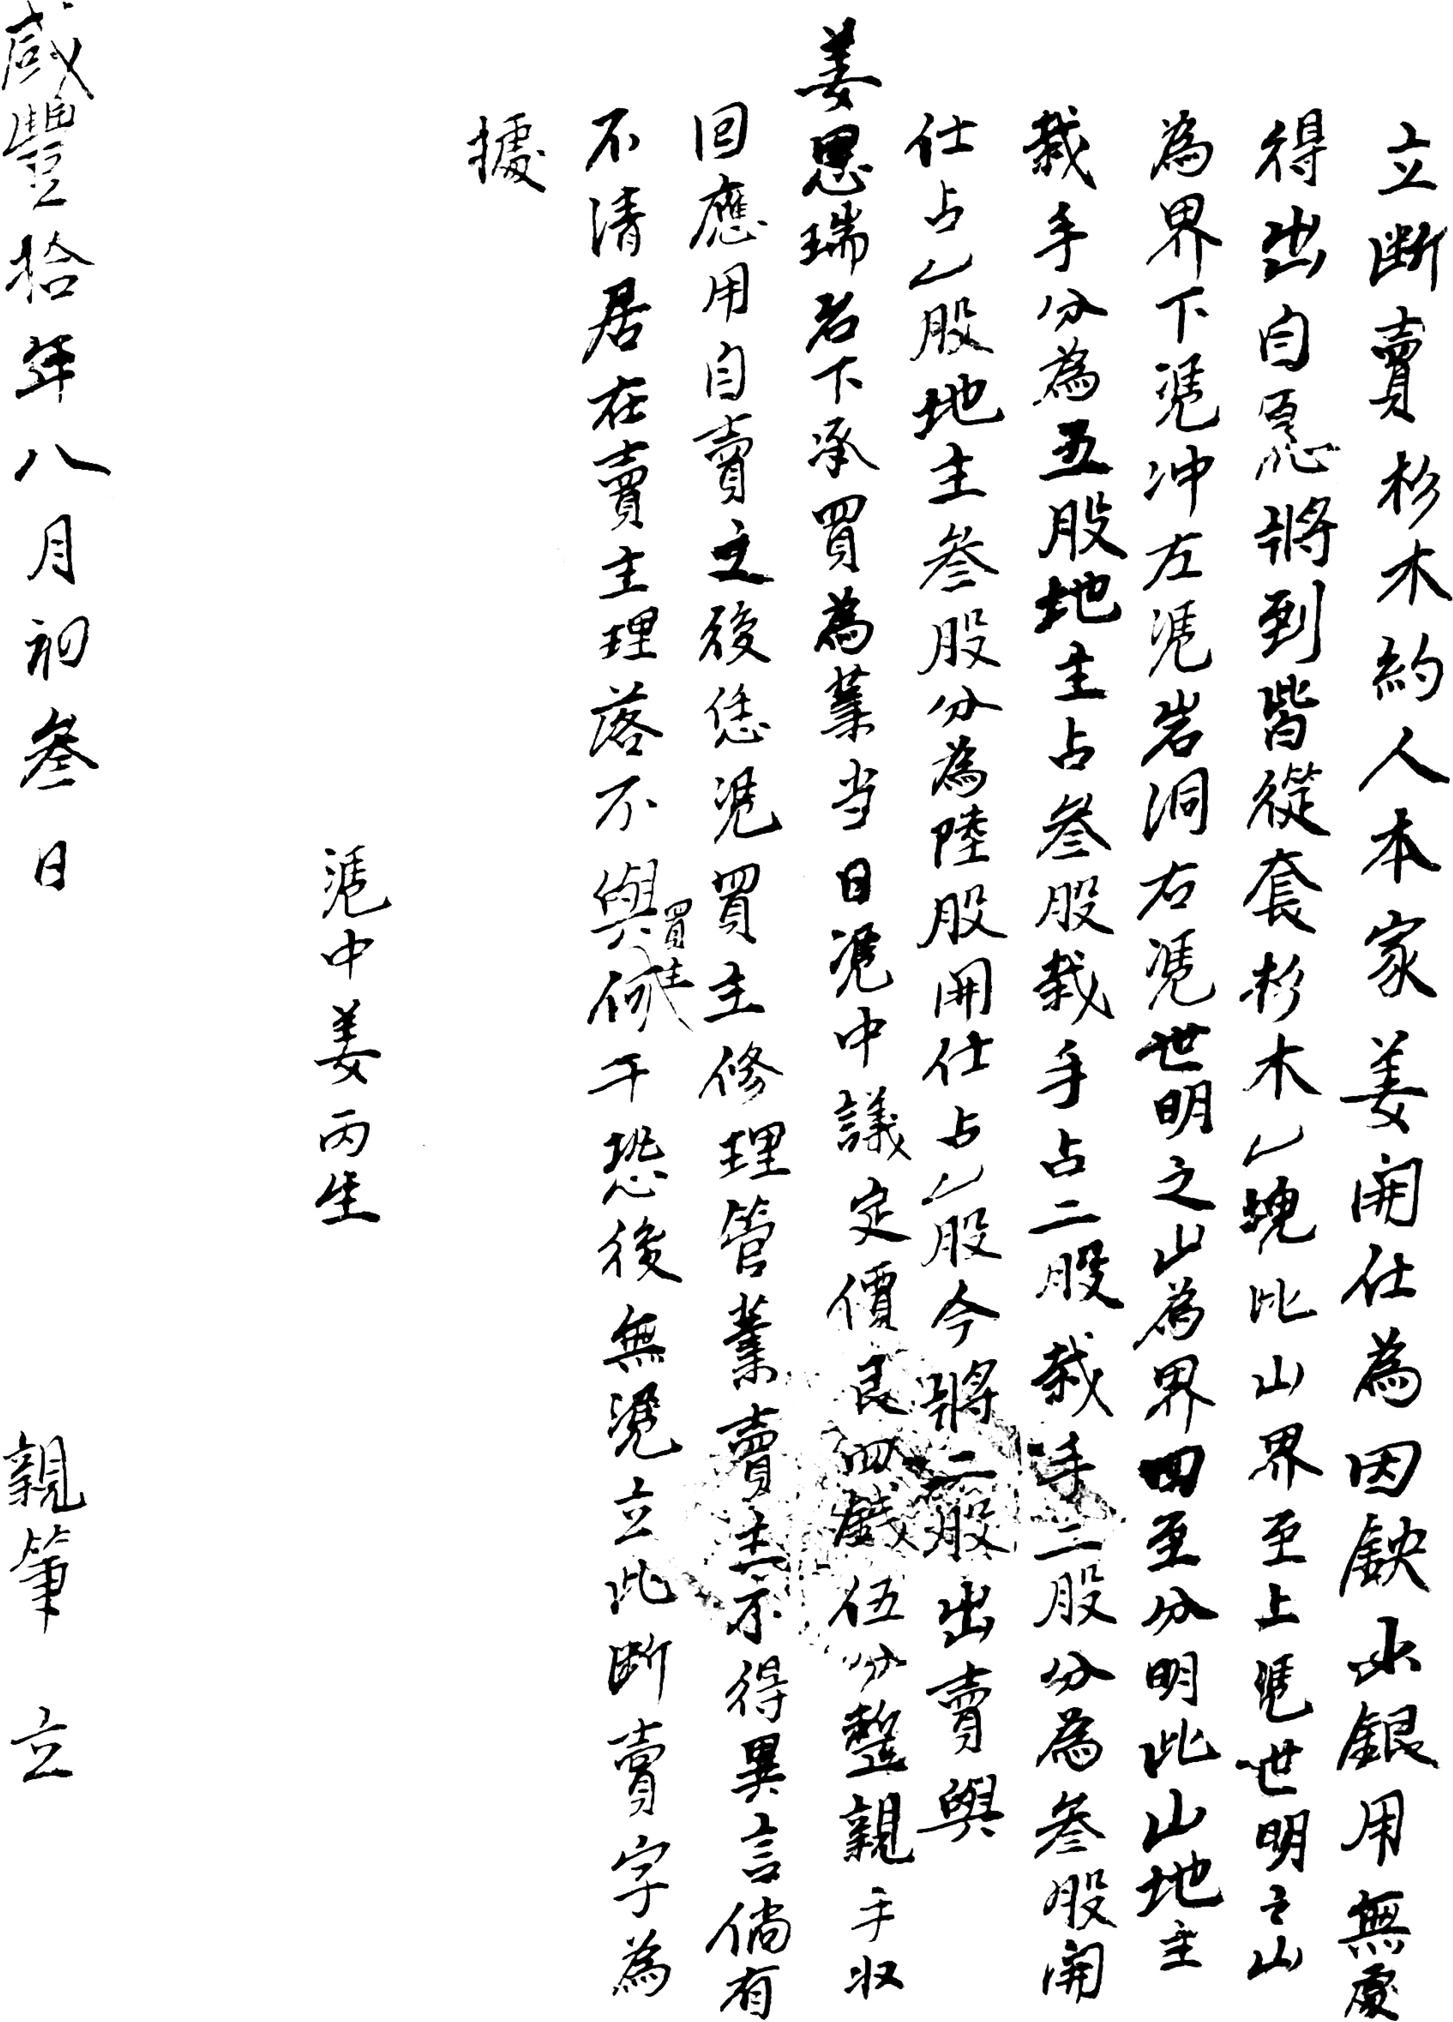 立斷賣杉木約人本家姜開仕為因缺少銀用無處
得出自愿將到皆從套杉木乙塊此山界至上凴世明之山
為界下凴冲左凴岩洞右凴世明之山為界四至分明此山地主
栽手分為五股地主占叁股栽手占二股栽手二股分為叁股開
仕占乙股地主叁股分為陸股開仕占乙股今將二股出賣與
姜恩瑞名下承買為業当日凴中議定價艮四錢伍分整親手收
回應用自賣之後恁凴買主修理管業賣主不得異言倘有
不清居在賣主理落不與買主何干恐後無凴立此斷賣字為
據
凴中姜丙生
咸豐拾年八月初叁日 親筆 立